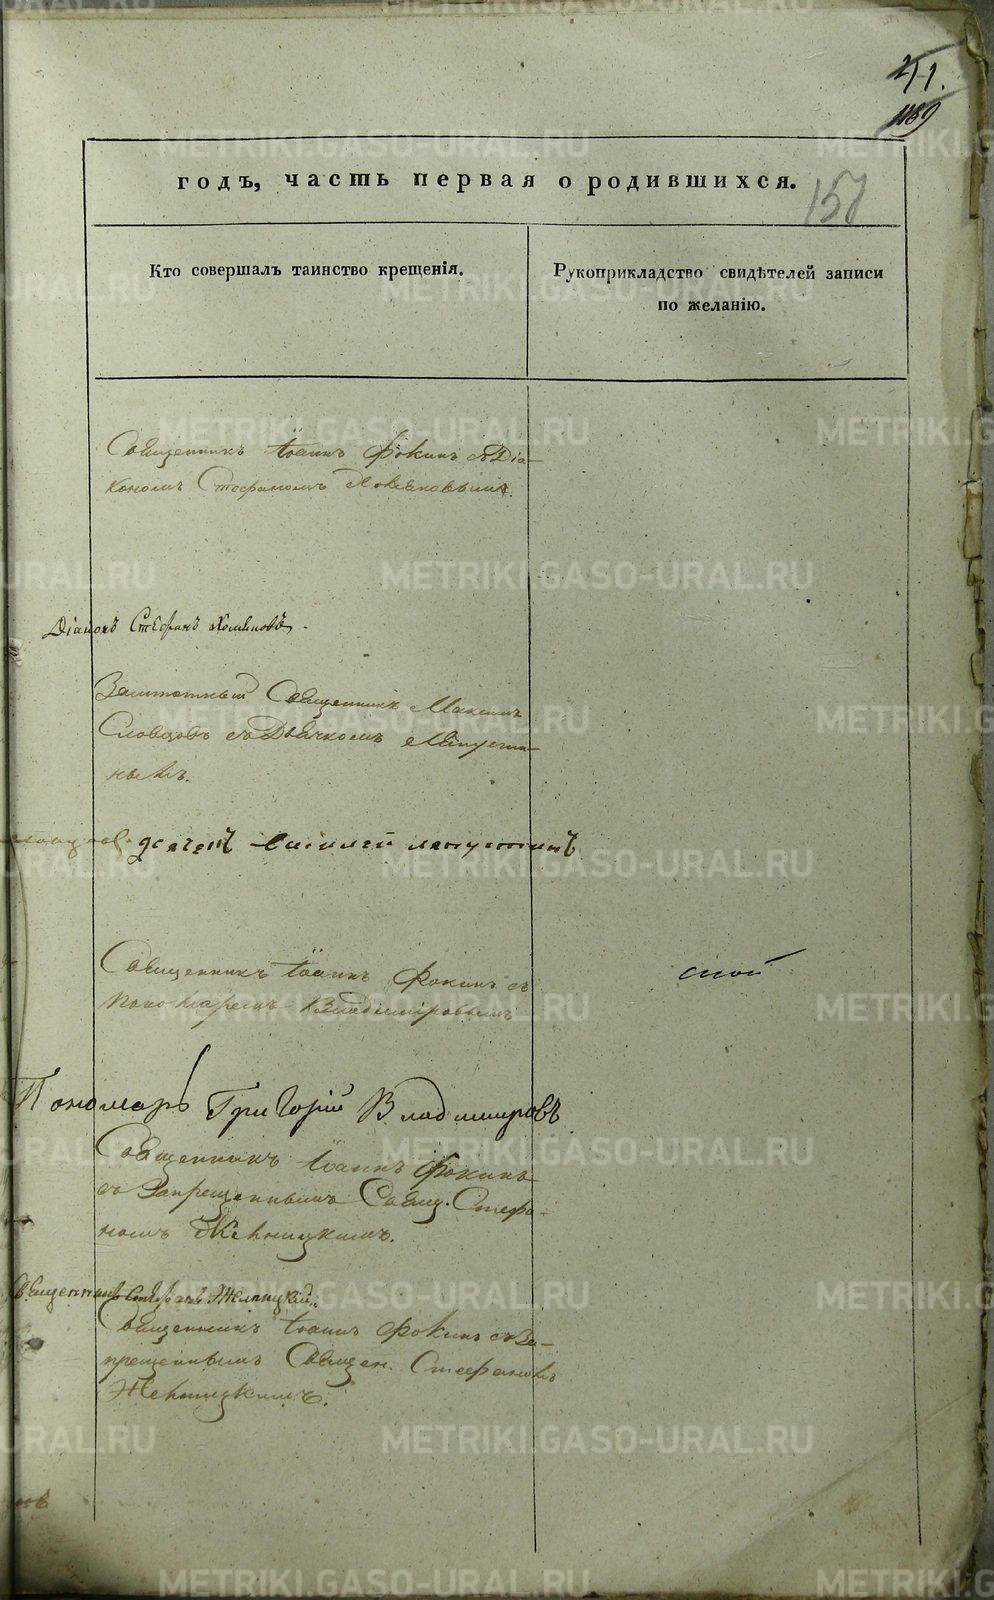 1189
годъ, часть первая о родившихся.
Кто совершалъ таинство крещенія.
Рукоприкладство свидѣтелей записи
по желанію.
Священникъ Іоаннъ Фокинъ съ Діа-
кономъ Стефаномъ Хомяковымъ.
Діаконъ Стефанъ Хомяковъ.
Заштатный Священникъ Максимъ
Словцовъ съ Дьячкомъ Мапусти-
нымъ.
дьячекъ Василей
Священникъ Іоаннъ Фокинъ съ
Пономаремъ Владиміровымъ
ской
Пономарь Григорій Владимировъ
Священникъ Іоаннъ Фокинъ
съ Запрещеннымъ Свящ. Стефа-
номъ Желницкимъ.
Священникъ Стефанъ Желницкій
Священникъ Іоаннъ Фокинъ съ За-
прещеннымъ Священ. Стефаномъ
Желницкимъ.
METRIKI.GASO-URAL.RU